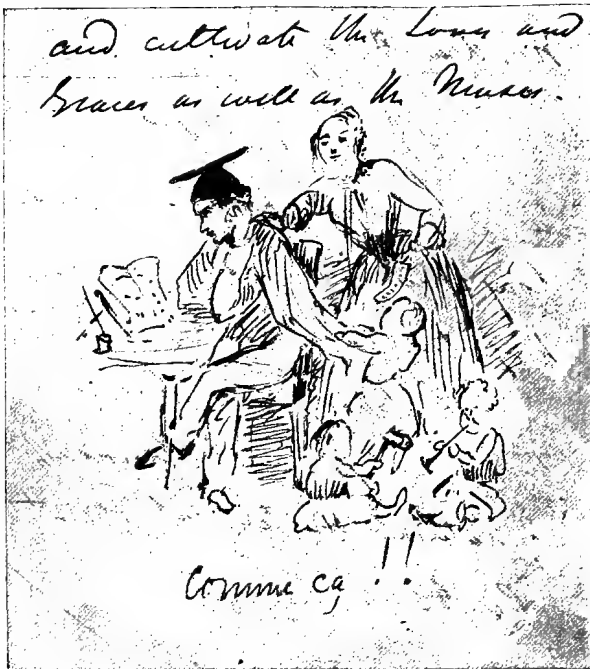 and cultivate the Loves and
Graces as well as the Muses.
Comme ça !!